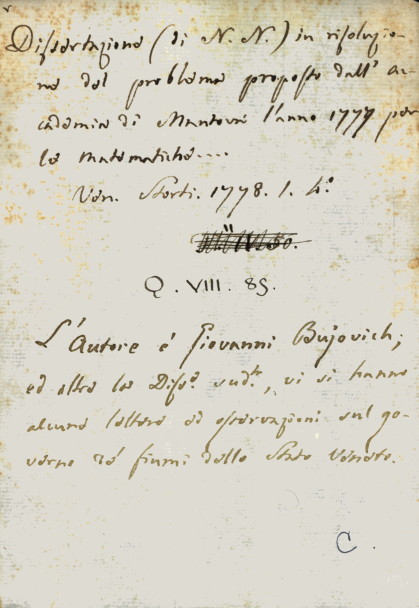 Dissertazione (di N. N.) in risoluzio-
ne del problema proposto dall' ac-
cademia di Mantova l'anno 1777 per
le matematiche....
Ven. Storti. 1778. 1. 4.º
Q. VIII. 89.
L'Autore è Giovanni Bujovich;
ed oltre la Diss.e sud.ta, vi si hanno
alcune lettere ed osservazioni sul go-
verno de' fiumi dello Stato Veneto.
C.